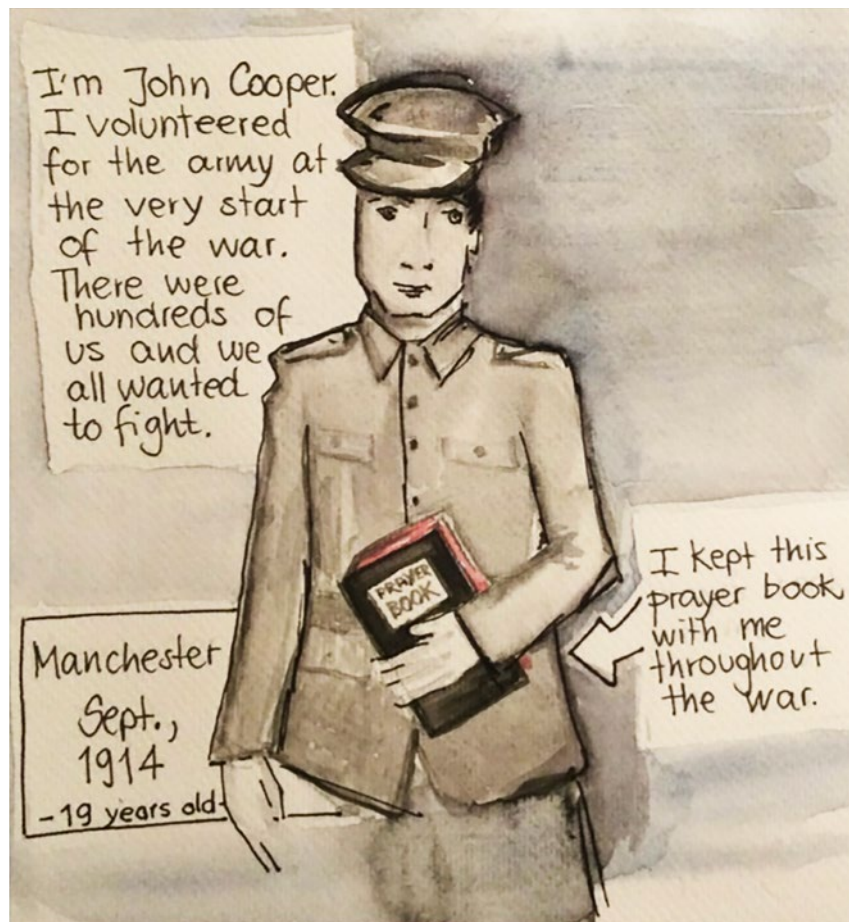 I'm John Cooper.
I volunteered
for the army at
the very start
of the war.
There were
hundreds of
us and we
all wanted
to fight.
PRAYER
BOOK
I kept this
prayer book
with me
throughout
the war.
Manchester
Sept.,
1914
-19 years old-